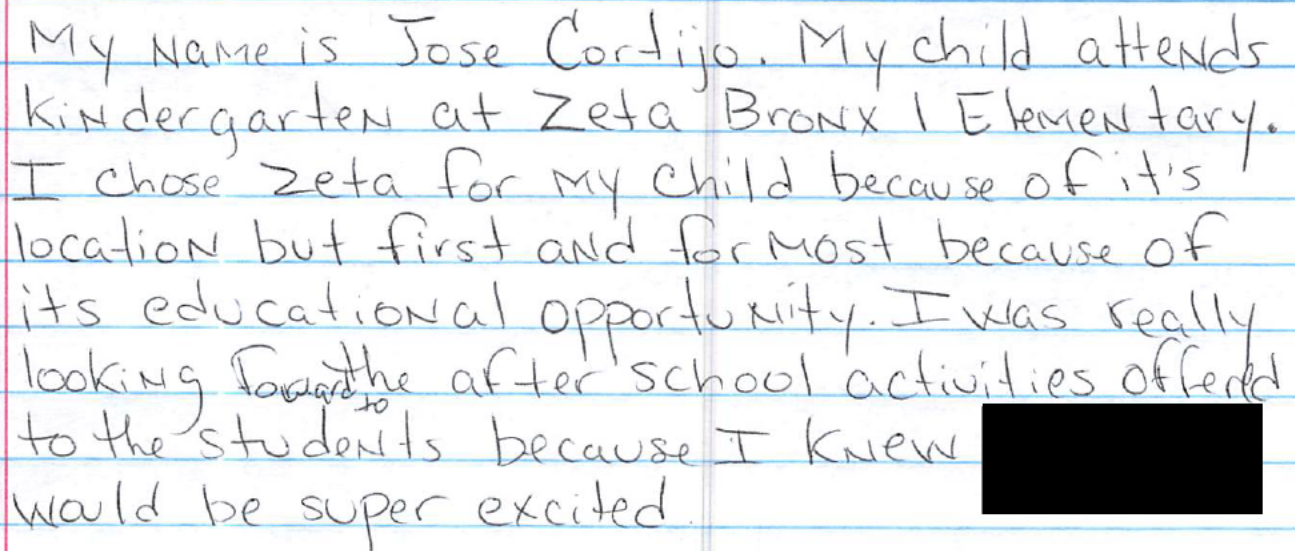 My Name is Jose Cortijo. My child attends
kindergarten at Zeta Bronx 1 Elementary.
I chose Zeta for my child because of it's
location but first and for most because of
its educational opportunity. I was really
looking foward to the after school activities offered
to the students because I knew
would be super excited.